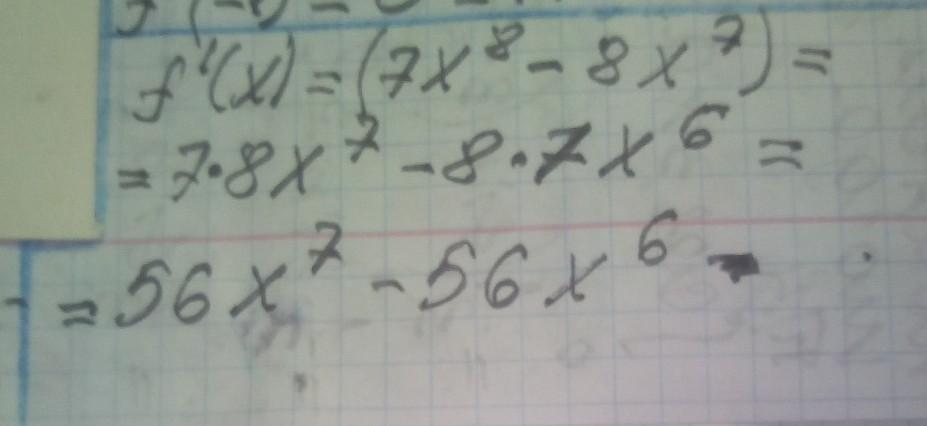 f'(x) = (7x⁸ - 8x⁷) =
= 7·8x⁷ - 8·7x⁶ =
= 56x⁷ - 56x⁶